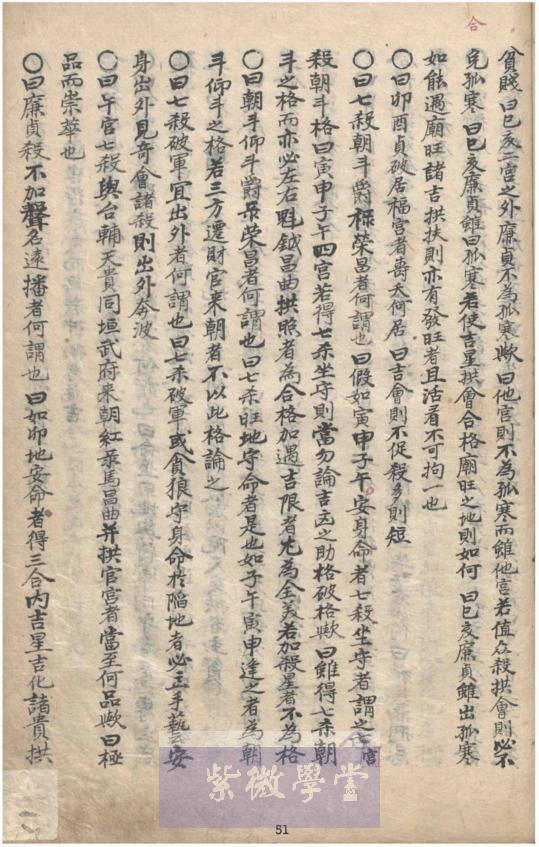 合
貧賤 曰巳亥二宮之外廉貞不為孤寒歟 曰他宮則不為孤寒而雖他宮若值众殺拱會則必不
免孤寒 曰巳亥廉貞雖曰孤寒若使吉星拱會合格廟旺之地則如何 曰巳亥廉貞雖出孤寒
如能遇廟旺諸吉拱扶則亦有發旺者且活看不可拘一也
〇曰卯酉貞破居福宮者壽夭何居 曰吉會則不促殺多則短
〇曰七殺朝斗爵祿榮昌者何謂也 曰假如寅申子午安身命者七殺坐守者謂之七宮
殺朝斗格曰寅申子午四宮若得七杀坐守則當勿論吉凶之助格破格歟 曰雖得七杀朝
斗之格而亦必左右魁鉞昌曲拱照者為合格加遇吉限者尤為全美若加殺星者不為格
〇曰朝斗仰斗爵祿荣昌者何謂也曰七杀旺地守命者是也如子午寅申逢之者為朝
斗仰斗之格若三方遷財官来朝者不以此格論之
〇曰七殺破軍宜出外者何謂也曰七杀破軍或貪狼守身命於陷地者必三手藝安
身出外見奇會諸殺則出外奔波
〇曰午宮七殺與台輔天貴同垣武府来朝紅鸞馬昌曲并拱官宮者當至何品歟曰極
品而崇華也
〇曰廉貞殺不加聲名遠播者何謂也 曰如卯地安命者得三合内吉星吉化諸貴拱
紫微學堂
51